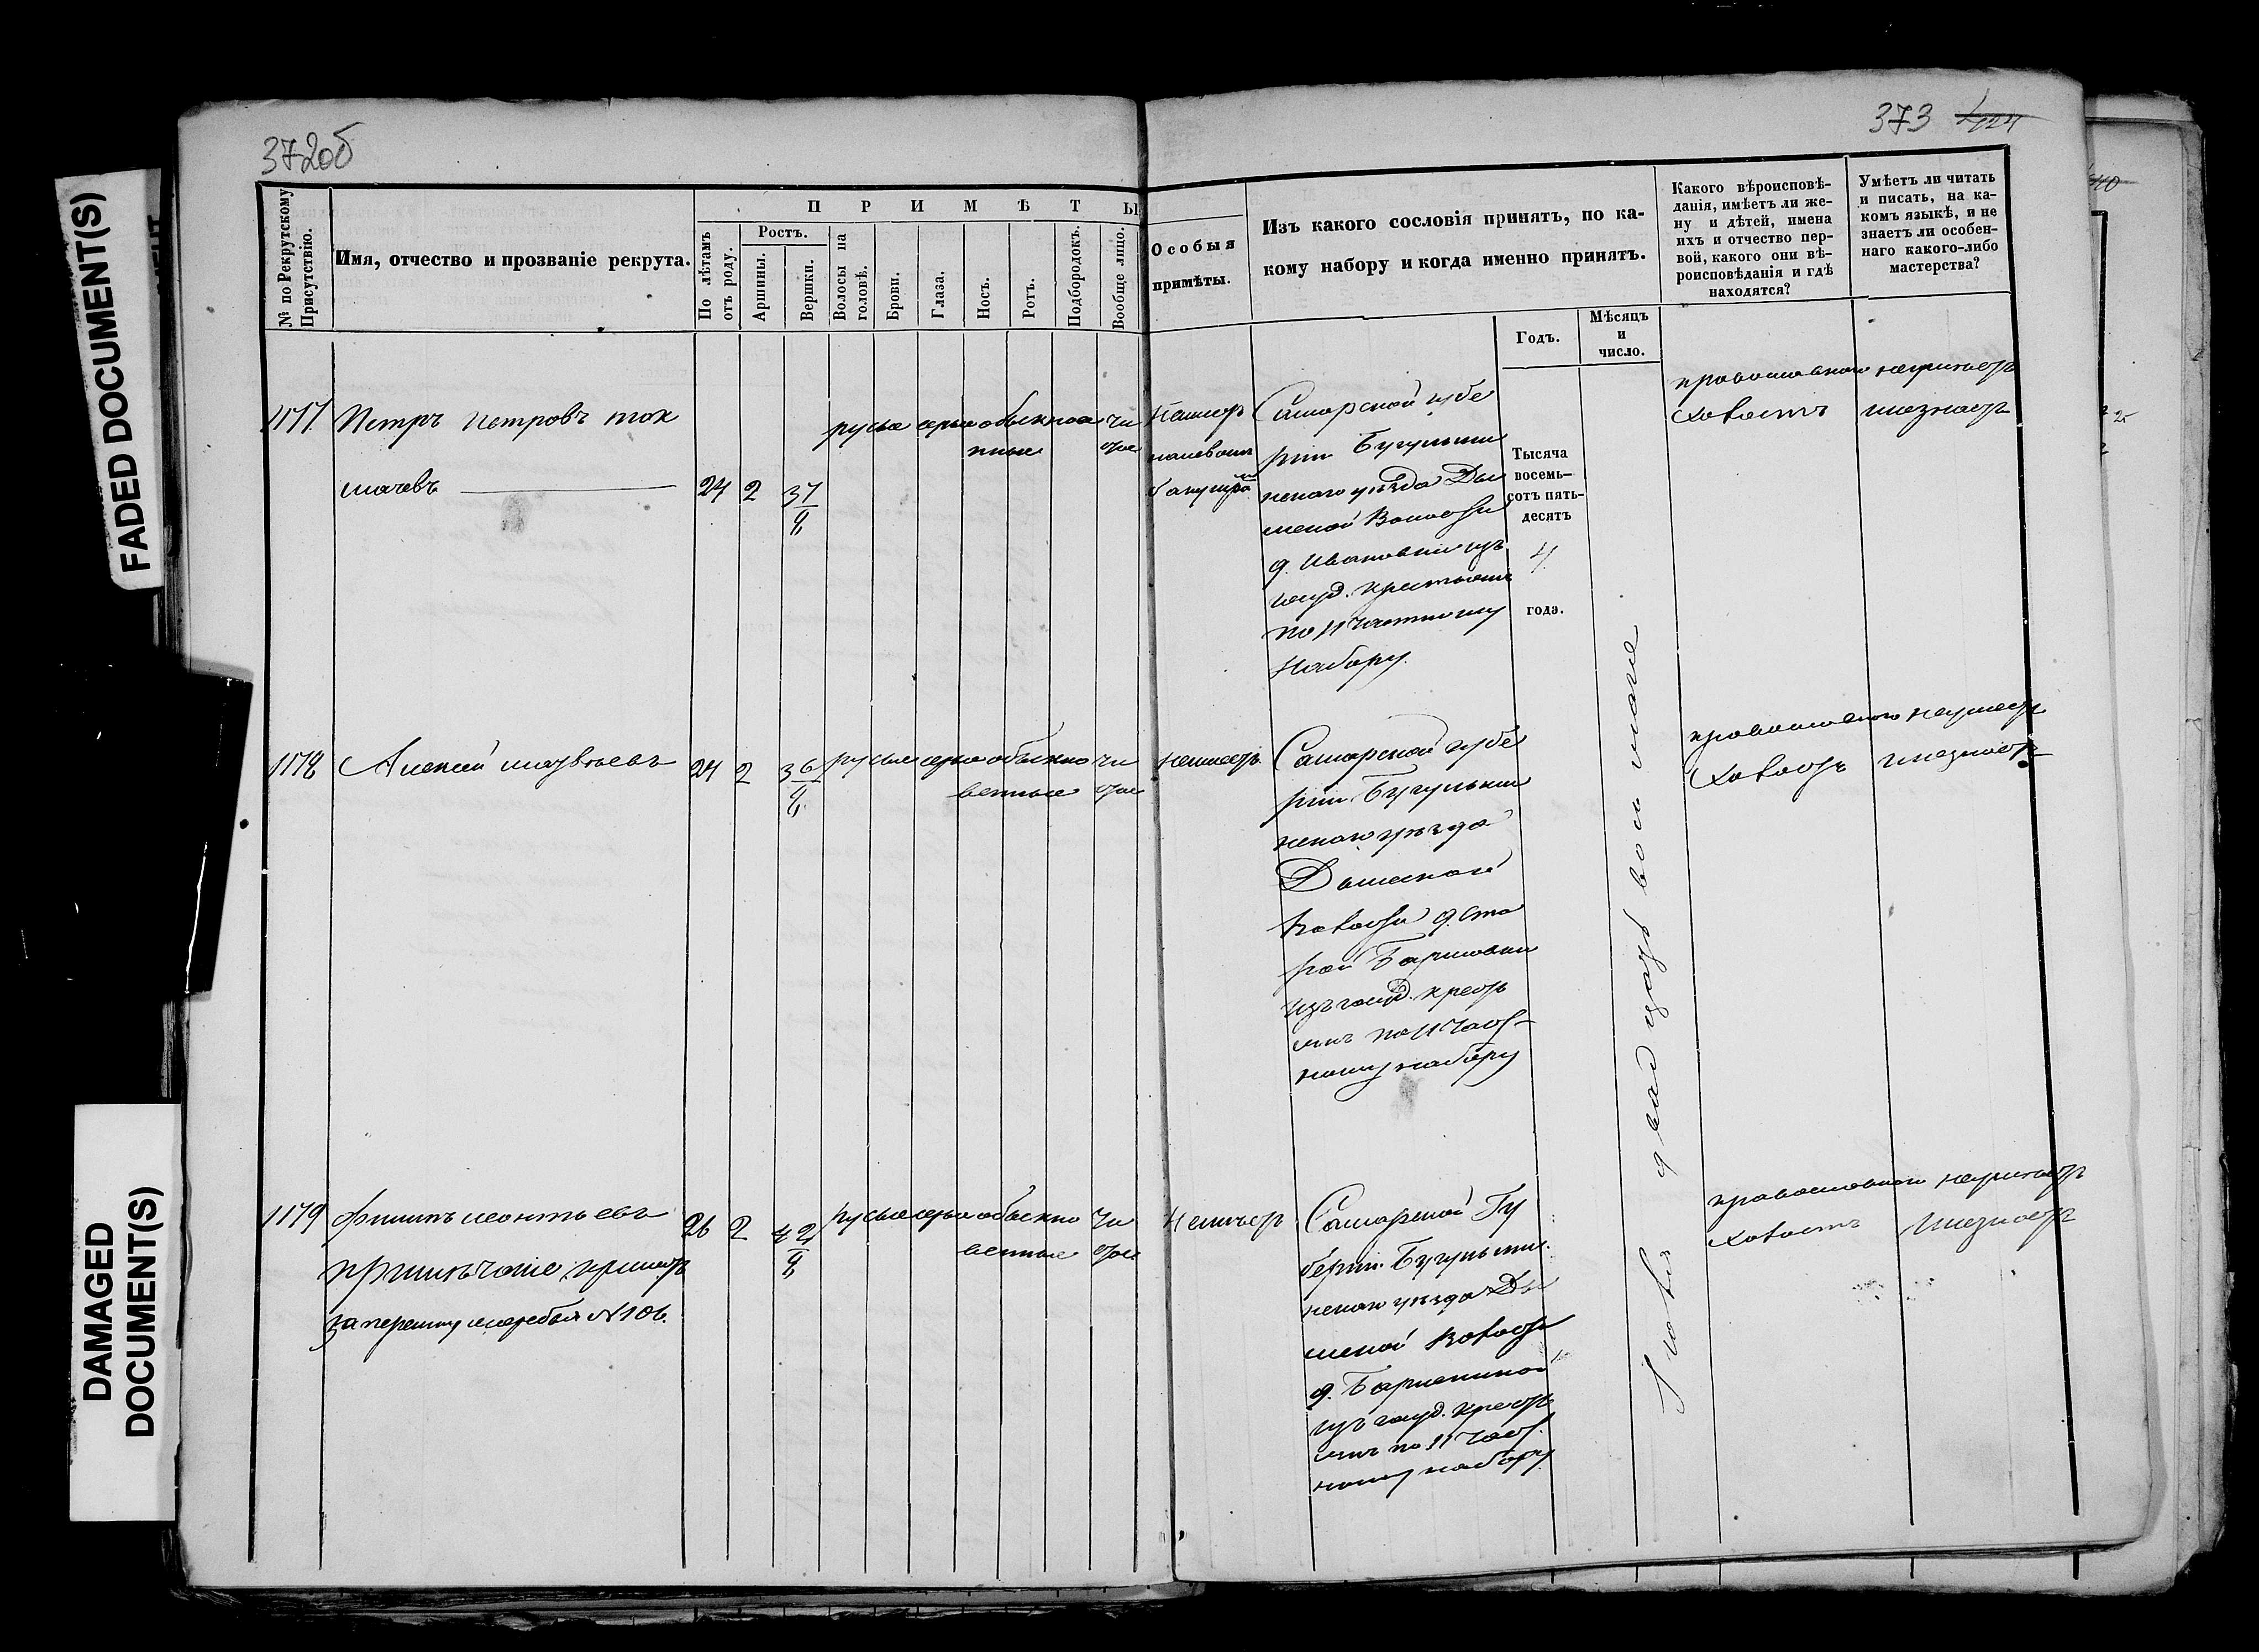 FADED DOCUMENT(S)
DAMAGED
DOCUMENT(S)
372об
373
№ по Рекрутскому
Присутствію.
Имя, отчество и прозваніе рекрута.
ПРИМѢТЫ
По лѣтамъ
отъ роду.
Ростъ.
Аршины.
Вершки.
Волосы на
головѣ.
Брови.
Глаза.
Носъ.
Ротъ.
Подбородокъ.
Вообще лицо.
Особыя
примѣты.
Изъ какого сословія принятъ, по ка-
кому набору и когда именно принятъ.
Годъ.
Мѣсяцъ
и
число.
Какого вѣроисповѣ-
данія, имѣетъ ли же-
ну и дѣтей, имена
ихъ и отчество пер-
вой, какого они вѣ-
роисповѣданія и гдѣ
находятся?
Умѣетъ ли читать
и писать, на ка-
комъ языкѣ, и не
знаетъ ли особен-
наго какого-либо
мастерства?
1177
Петръ Петровъ ток
мачевъ
24 2 3 7/8
русые серые обыкнове
нные
чи
стое
Самарской губе
рніи Бугульми
нскаго уѣзда Ды
мской Волости
д. Ивановки изъ
госуд. крестьянъ
по 11 частному
набору.
Тысяча
восемь-
сотъ пять-
десятъ
4
года.
православнаго
холостъ
неумѣетъ
и незнаетъ
1178
Алексей матвѣевъ
24 2 3 6/8
русые серые обыкно
венные
чи
стое
неимеетъ
Самарской губе
рніи Бугульми
нскаго уѣзда
Дымской
Волости д. Ста
рой
изъ госуд. кресть
янъ по 11 част-
ному набору
православнаго
холостъ
неумеетъ
и незнаетъ
1179
Филипъ леонтьевъ
примѣчаніе принятъ
за перемену жеребья № 106.
26 2 4 2/8
русые серые обыкно
венные
чи
стое
Неимѣетъ
Самарской Гу
берніи Бугульми
нскаго уѣзда Ды
мской Волости
д.
изъ госуд. кресть
янъ по 11 част
ному набору
православнаго
холостъ
неумѣетъ
и незнаетъ